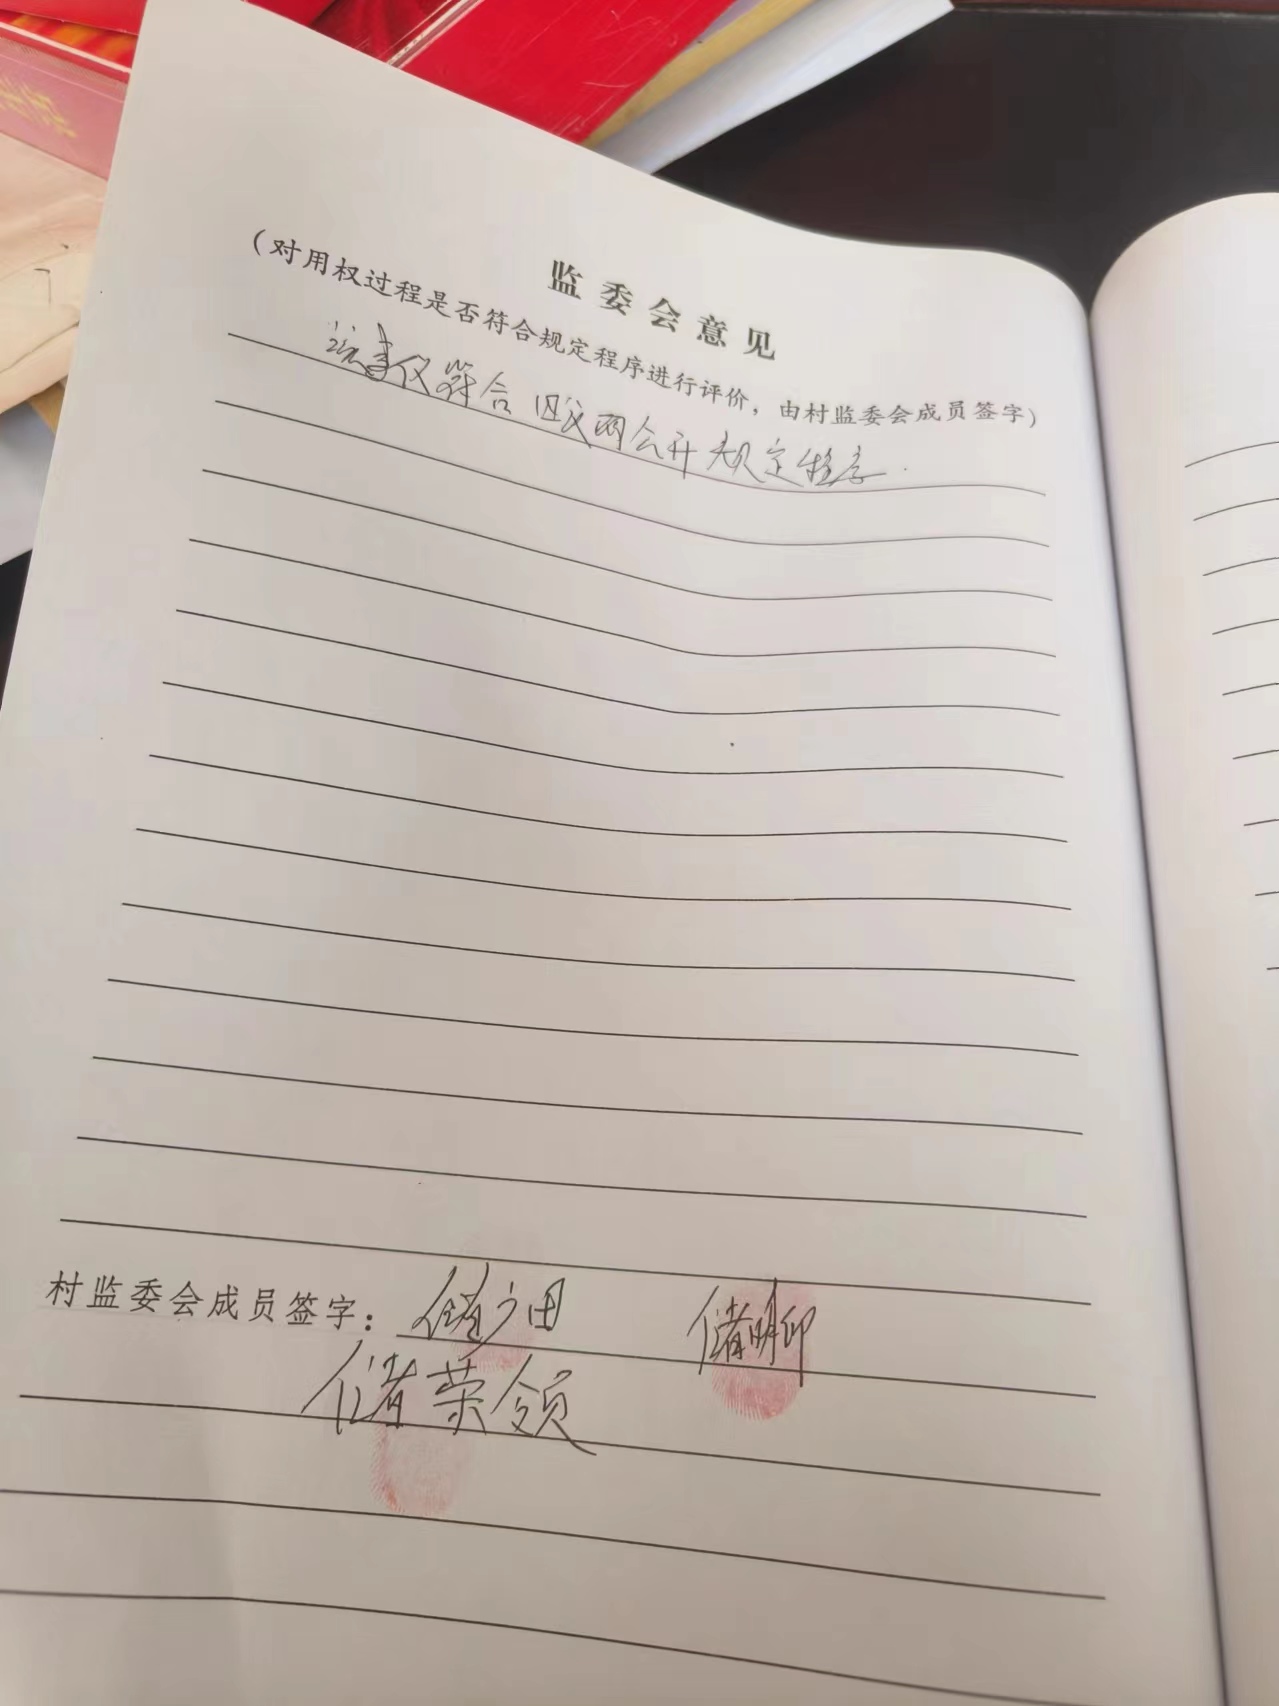 监委会意见
(对用权过程是否符合规定程序进行评价，由村监委会成员签字)
该事仪符合四议两公开规定程序.
村监委会成员签字：储广田 储明印
储荣领